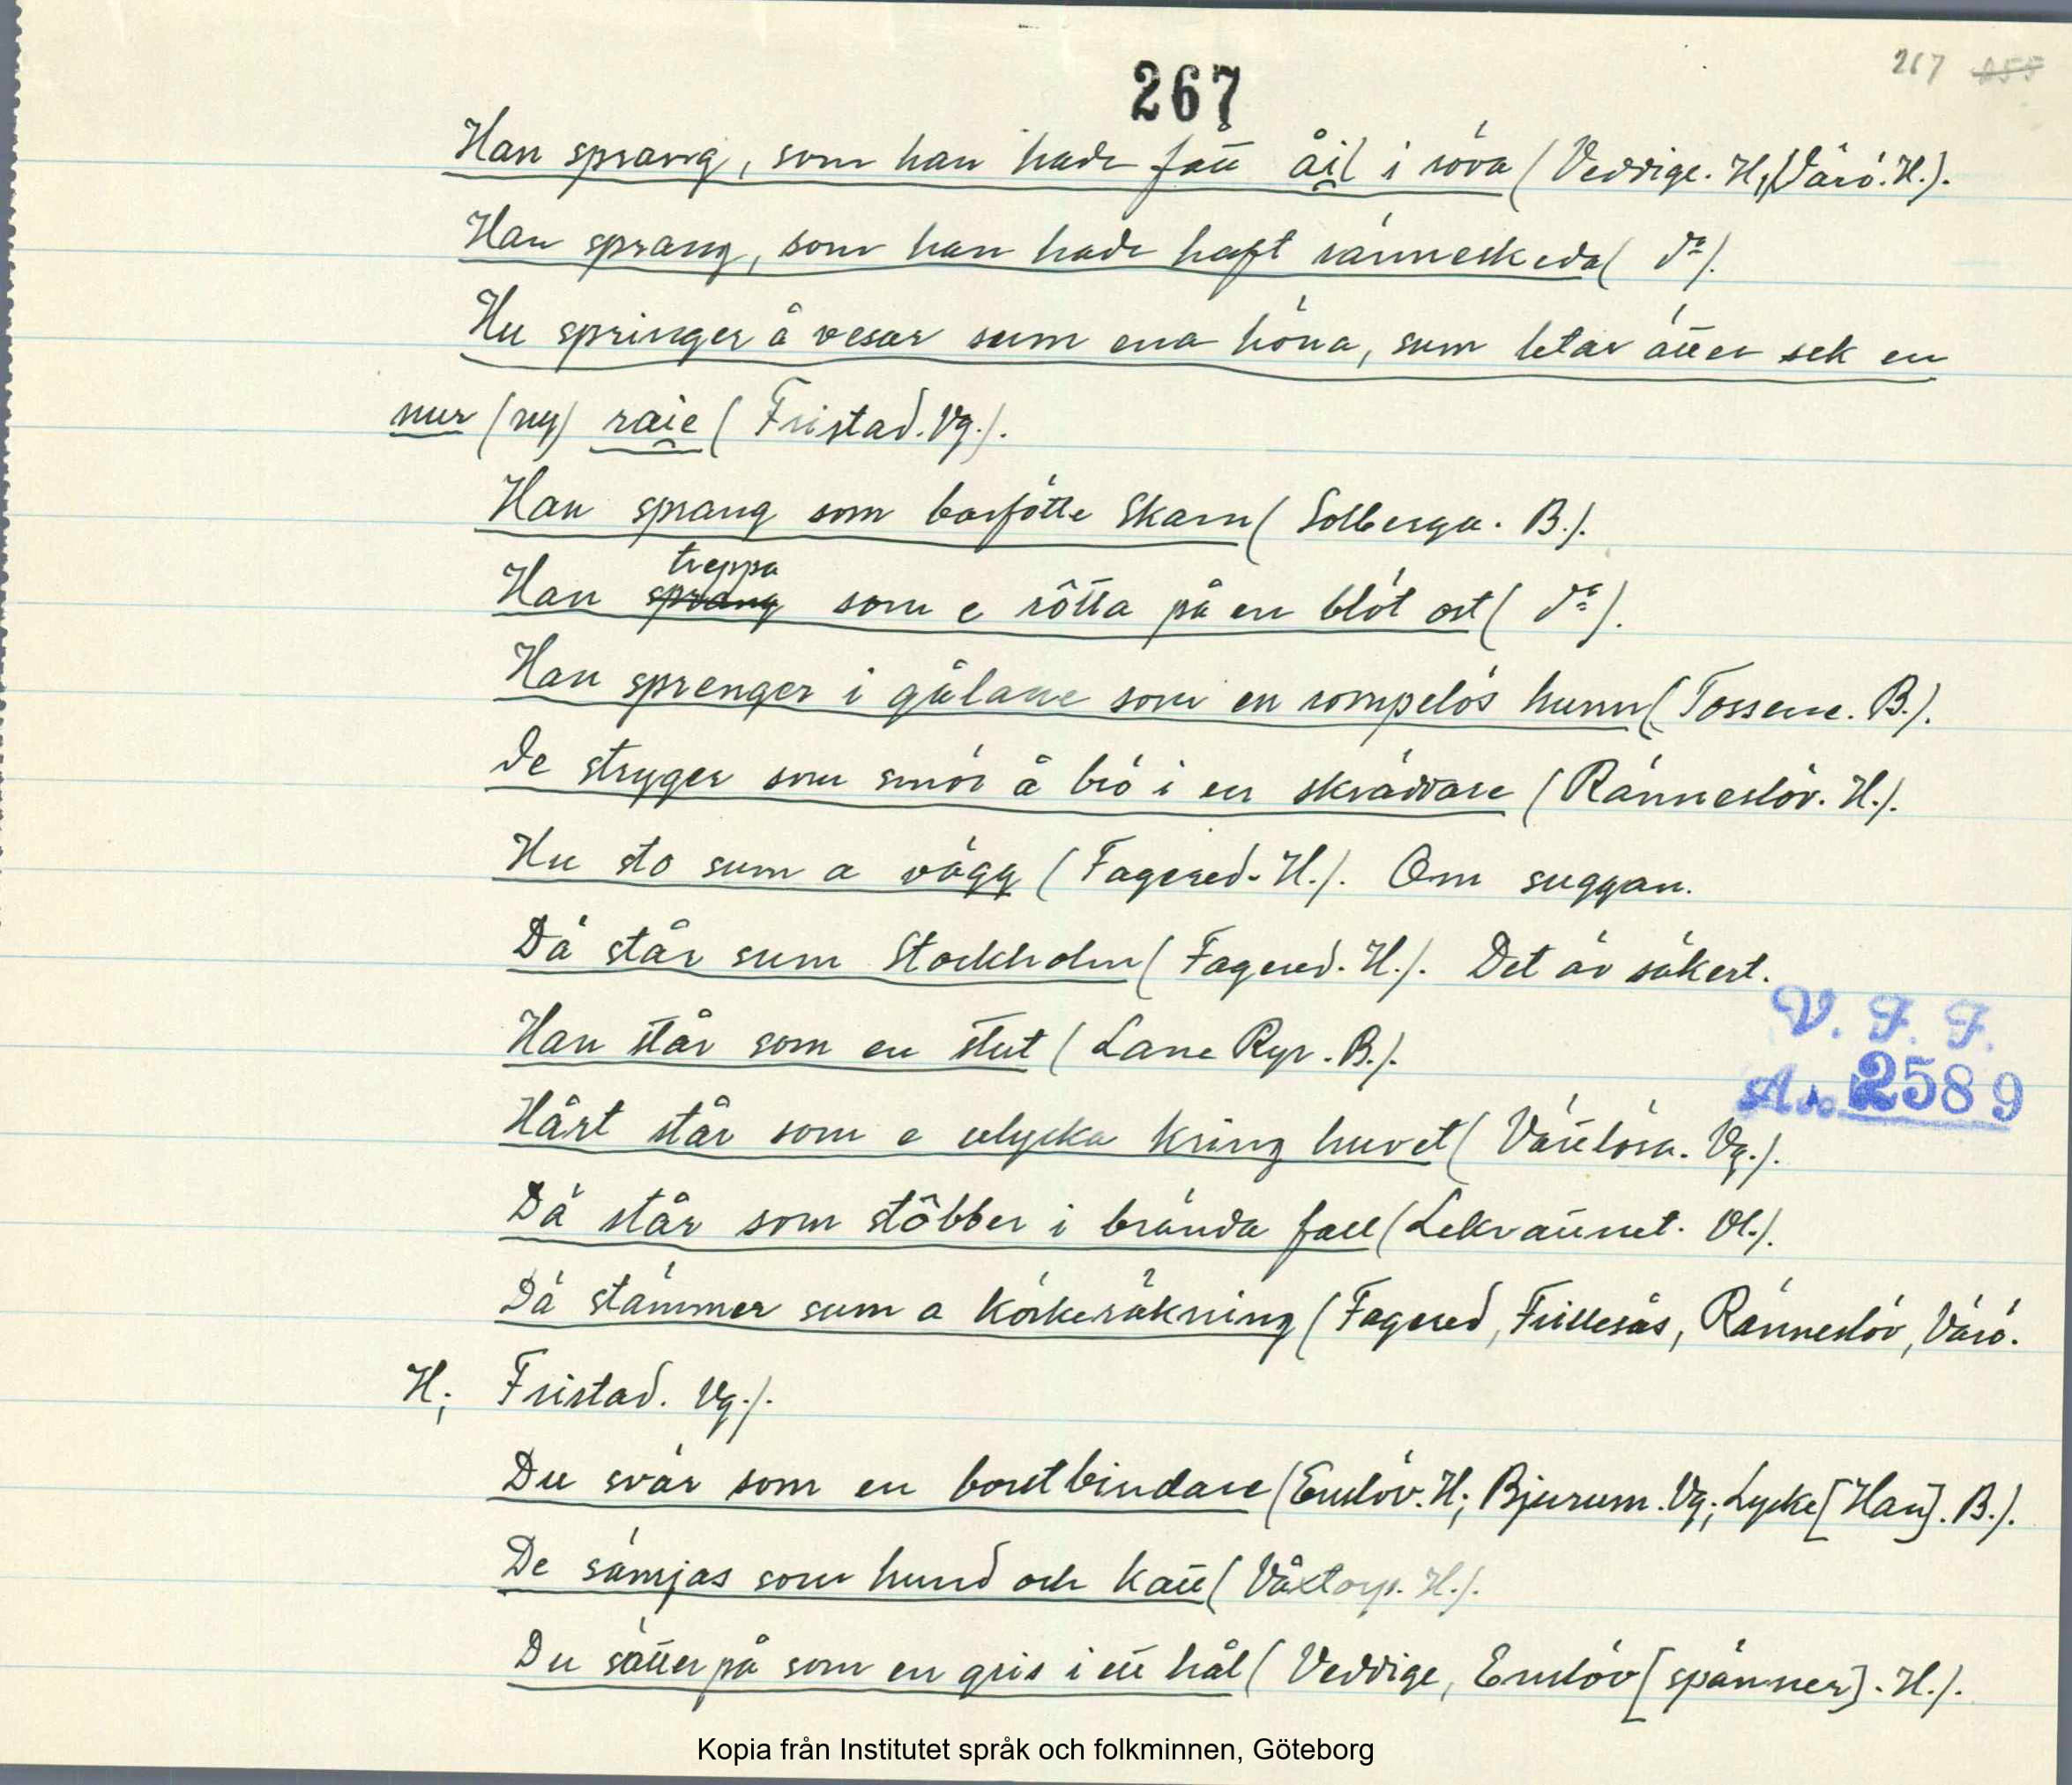 267 255
267
Han sprang, som han hade fått åil i röva (Veddige. H, Värö. H.).
Han sprang, som han hade haft ränneskeda (do).
Hu springer å vesar sum ena höna, sum letar ätter sek en
nur (ny) raie (Fristad. Vg.).
Han sprang som barfötte Skam (Solberga. B.).
treppa
Han sprang som e rôtta på en blöt ost (do).
Han sprenger i gålane som en rompelös hunn (Tossene. B.).
De stryger som smör å brö i en skräddare (Ränneslöv. H.).
Hu sto sum a vägg (Fagered. H.). Om suggan.
Dä står sum Stockholm (Fagered. H.). Det är säkert.
Han står som en stut (Lane Ryr. B.).
V. F. F.
A. 2589
Hårt står som e ulycka kring huvet (Vättlösa. Vg.).
Dä står som stôbber i brända fall (Lekvattnet. Vl.).
Dä stämmer sum a körkeräkning (Fagered, Frillesås, Ränneslöv, Värö.
H; Fristad. Vg.).
Du svär som en borstbindare (Enslöv. H; Bjurum. Vg; Lycke [Han]. B.).
De sämjas som hund och katt (Våxtorp. H.).
Du sätter på som en gris i ett hål (Veddige, Enslöv [spänner]. H.).
Kopia från Institutet språk och folkminnen, Göteborg